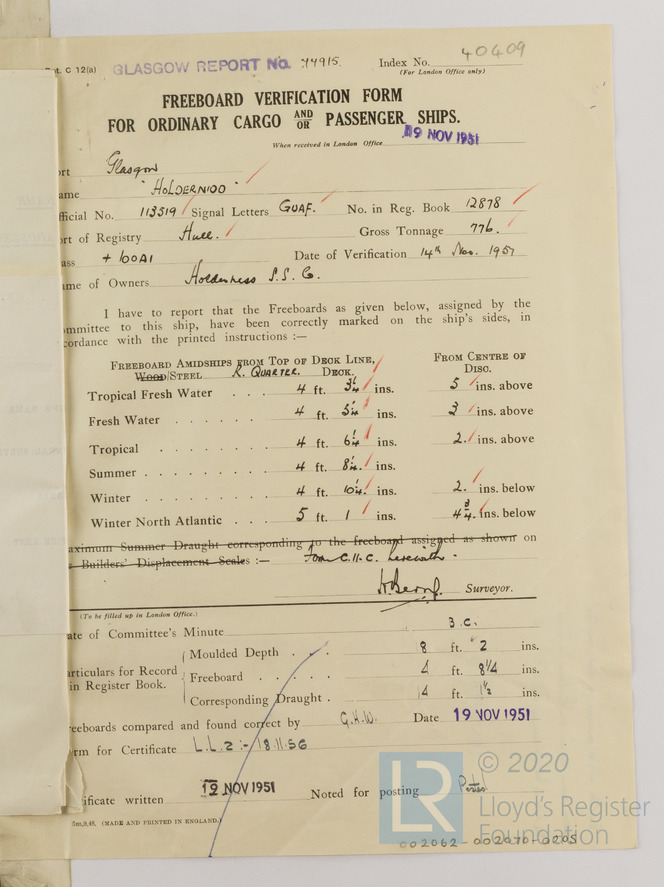 pt. C 12(a) GLASGOW REPORT No. 74915 Index No. 40409
(For London Office only)
FREEBOARD VERIFICATION FORM
FOR ORDINARY CARGO AND/OR PASSENGER SHIPS.
When received in London Office 19 NOV 1951
ort Glasgow
ame "HOLDERNIDO"
fficial No. 113519 Signal Letters GUAF. No. in Reg. Book 12878
ort of Registry Hull. Gross Tonnage 776.
ass + 100A1 Date of Verification 14th Nov. 1951
me of Owners Holderness S.S. Co.
I have to report that the Freeboards as given below, assigned by the
ommittee to this ship, have been correctly marked on the ship's sides, in
cordance with the printed instructions :—
FREEBOARD AMIDSHIPS FROM TOP OF DECK LINE, FROM CENTRE OF
WOOD/STEEL R. QUARTER. DECK. DISC.
Tropical Fresh Water . . . 4 ft. 3¼ ins. 5 ins. above
Fresh Water . . . . . . 4 ft. 5¼ ins. 3 ins. above
Tropical . . . . . . 4 ft. 6¼ ins. 2. ins. above
Summer . . . . . . . 4 ft. 8¼ ins.
Winter . . . . . . . 4 ft. 10¼ ins. 2. ins. below
Winter North Atlantic . . . 5 ft. 1 ins. 4¾ ins. below
aximum Summer Draught corresponding to the freeboard assigned as shown on
Builders' Displacement Scales :— Form C.11.C. herewith.
Surveyor.
(To be filled up in London Office.)
ate of Committee's Minute 3.C.
Moulded Depth . . . 8 ft. 2 ins.
articulars for Record
in Register Book.
Freeboard . . . . . 4 ft. 8¼ ins.
Corresponding Draught . 14 ft. 1½ ins.
eeboards compared and found correct by G.H.W. Date 19 NOV 1951
rm for Certificate L.L.2 :- 18.11.56
ificate written 12 NOV 1951 Noted for posting Posted
5m,9.48. (MADE AND PRINTED IN ENGLAND.)
LR © 2020
Lloyd's Register
Foundation
002062-002070-0205